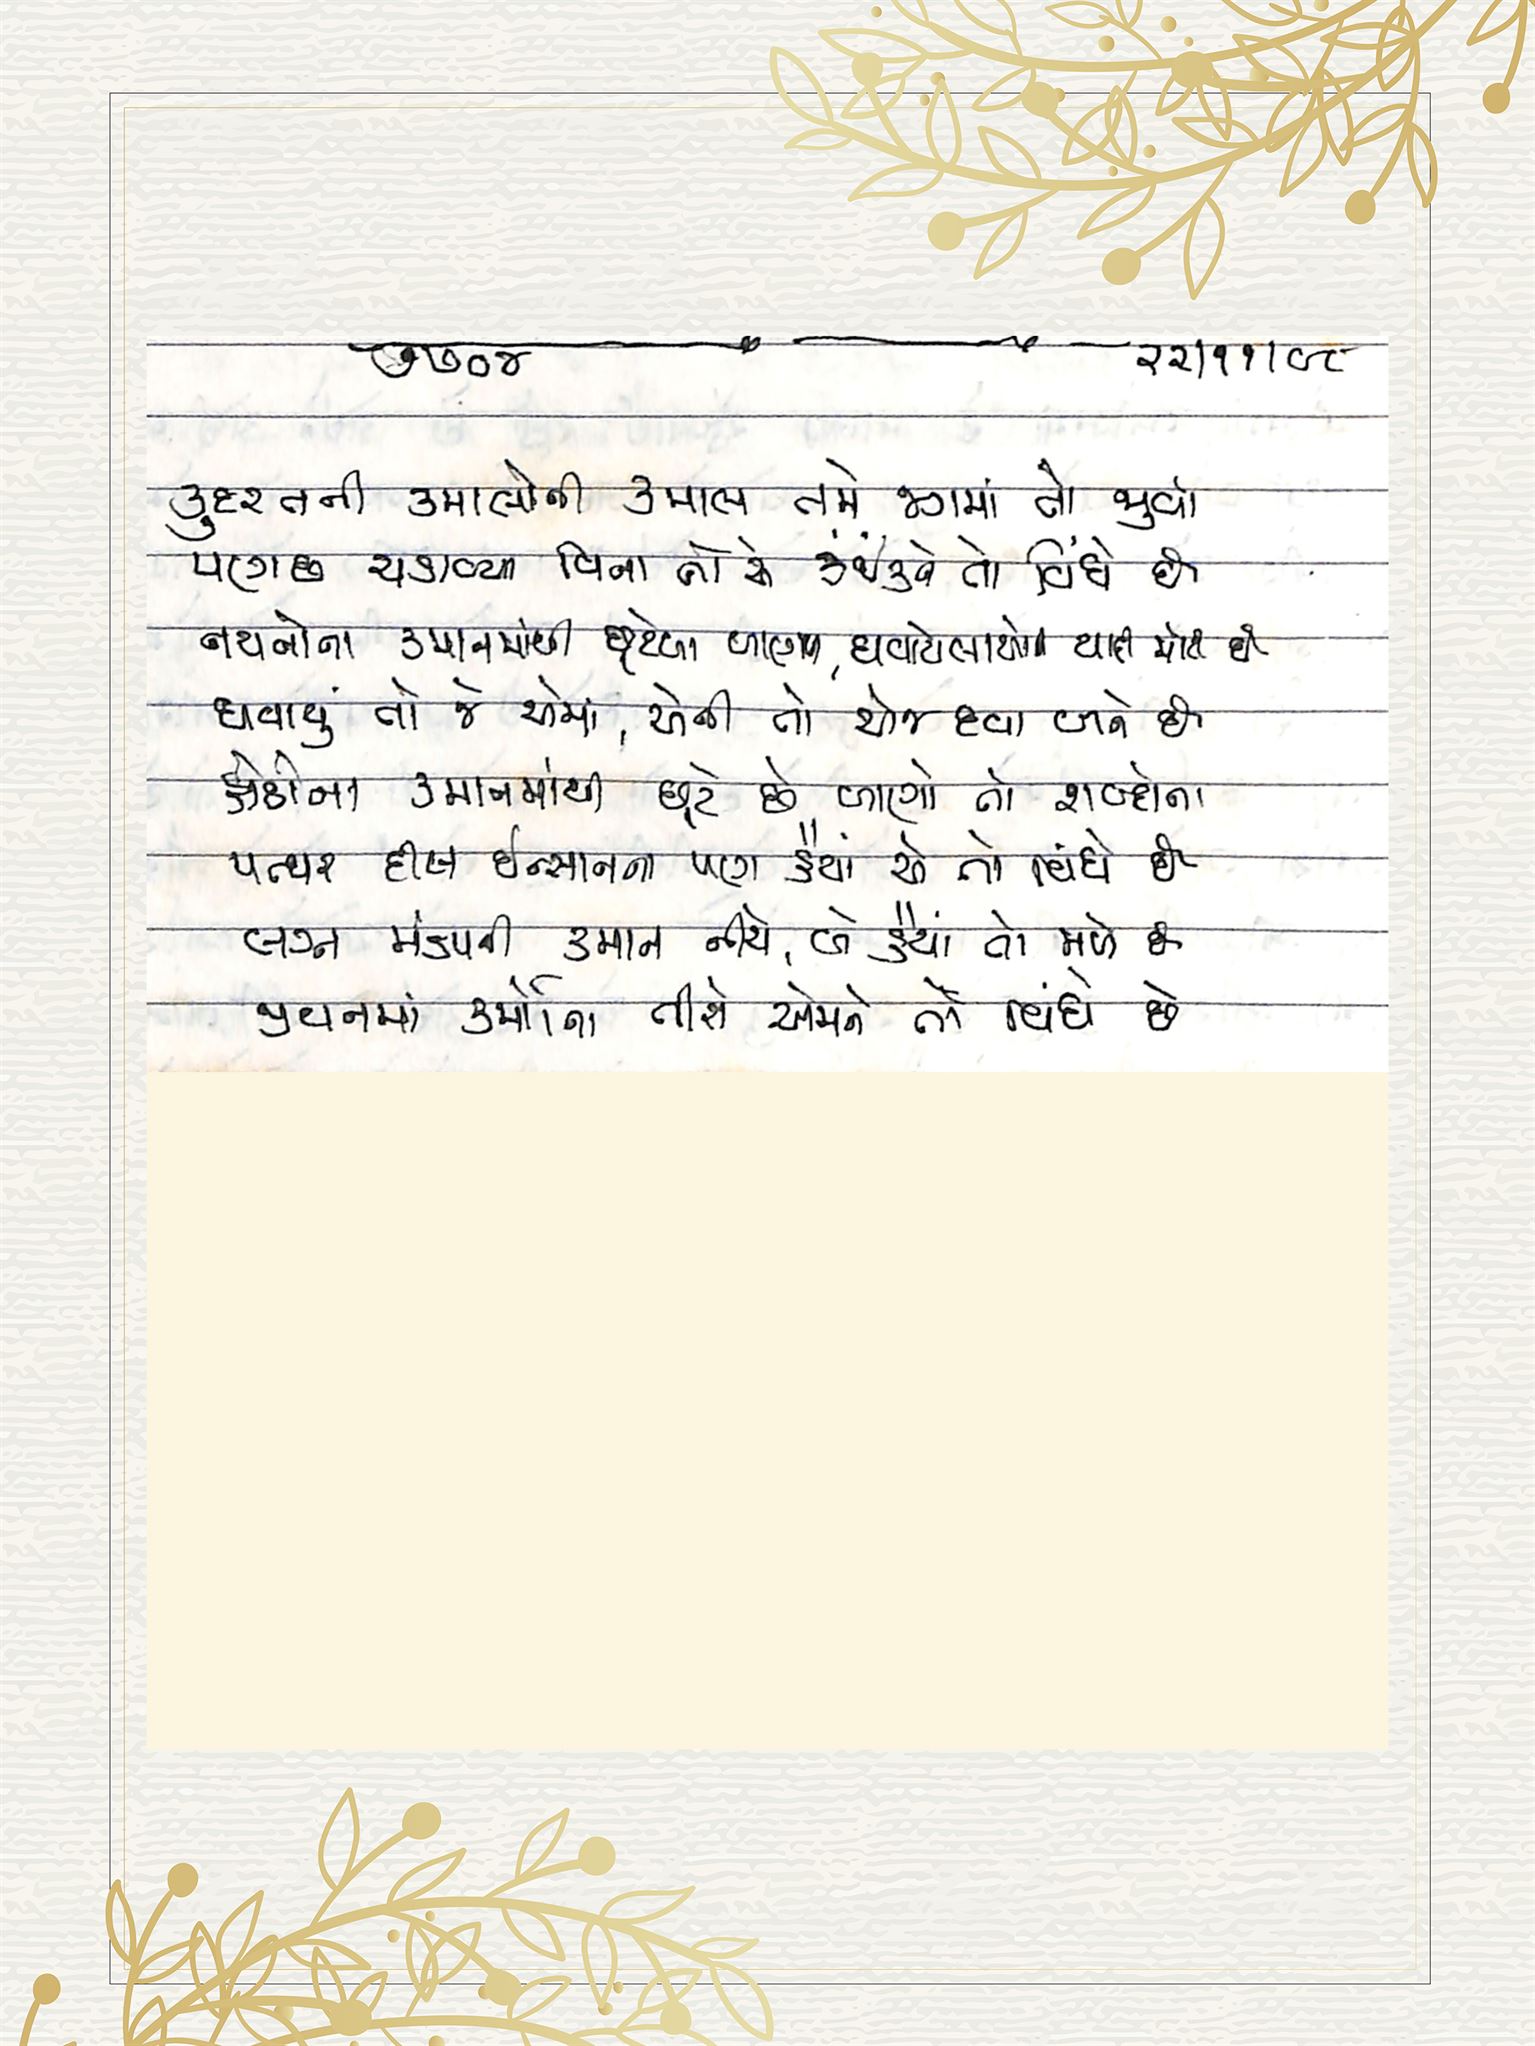 ૭૭૦૪ ૨૨/૧૧/૯૮
કુદરતની કમાલોની કમાલ તમે જગમાં તો જુવો
પણછ ચડાવ્યા વિના તો એ કંઈકને તો વિંધે છે
નયનોના કમાનમાંથી છૂટેલા બાણ, ઘવાયેલાઓ યાદી મોટી છે
ઘવાયું તો જે એમાં, એની તો એજ દવા બને છે
હોઠોના કમાનમાંથી છૂટે છે બાણો તો શબ્દોના
પત્થર દીલ ઈન્સાનના પણ હૈયાં એ તો વિંધે છે
લગ્ન મંડપની કમાન નીચે, બે હૈયાં તો મળે છે
જીવનમાં કર્મોના તીરો એમને તો વિંધે છે